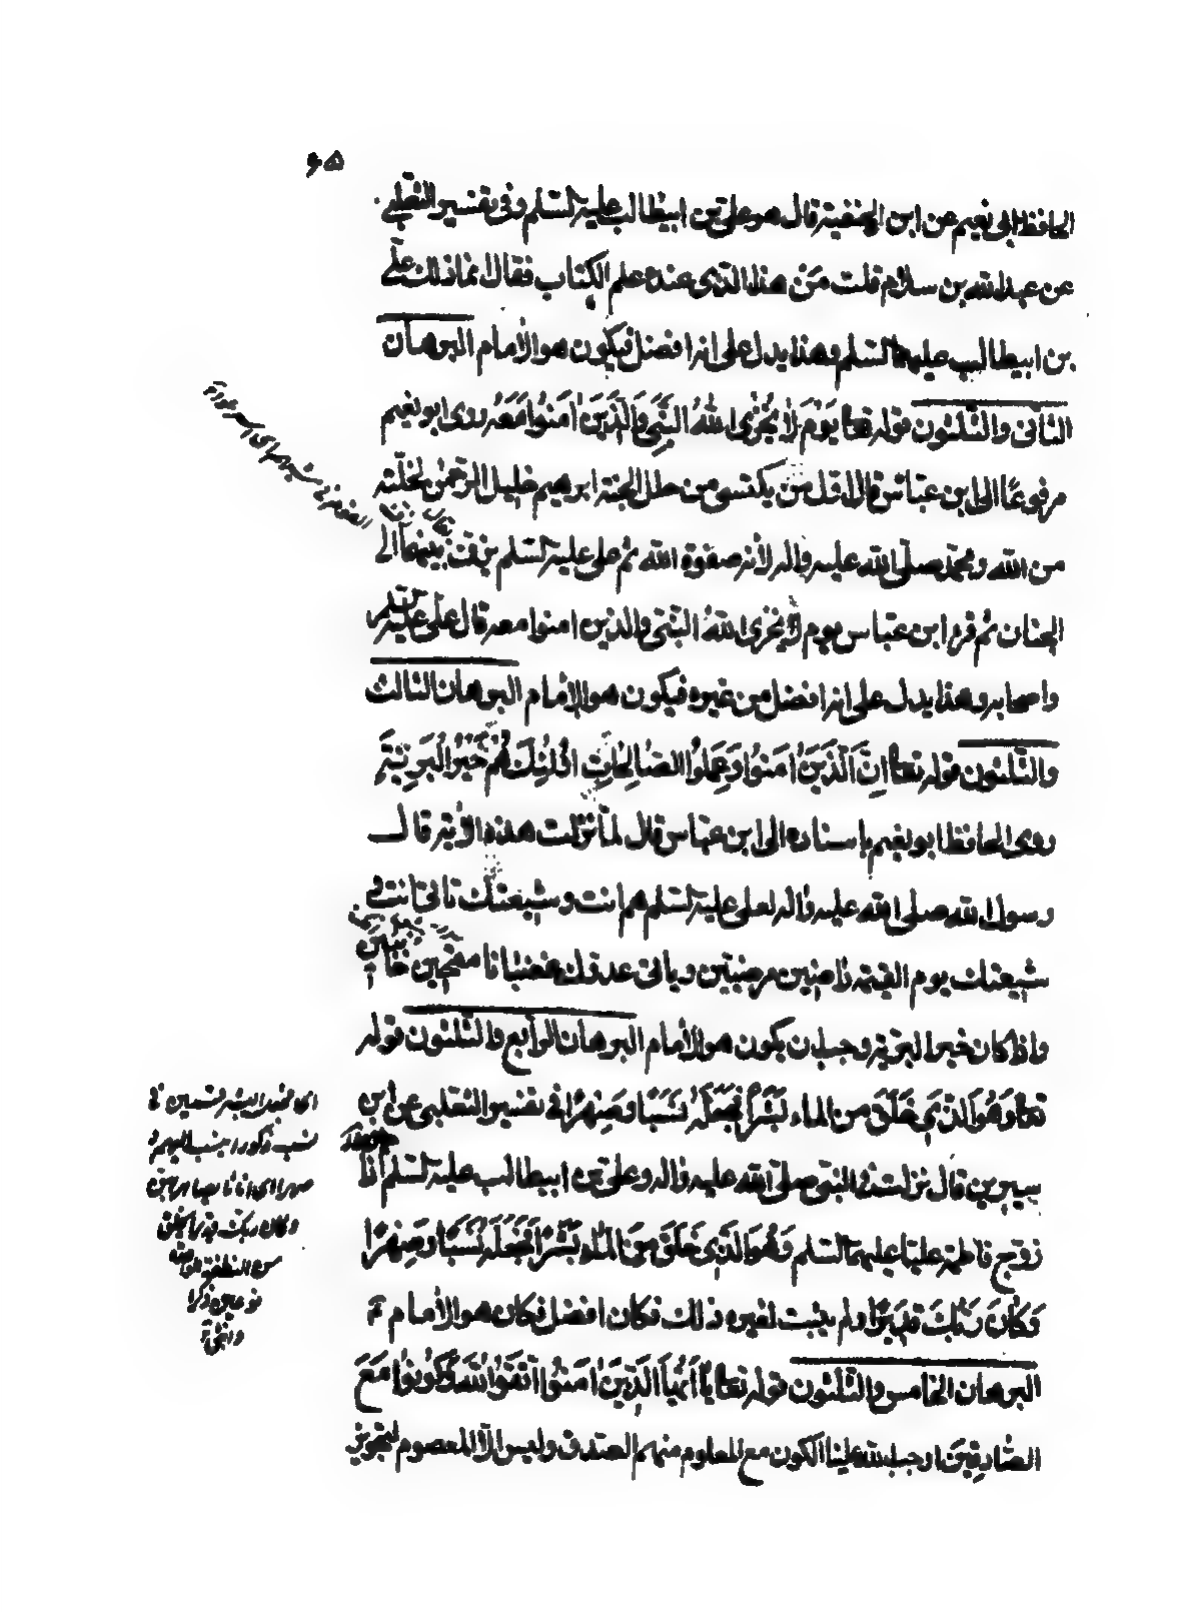 ٦٥
الحافظ ابى نعيم عن ابن الحنفية قال هو على بن ابيطالب عليه السلم وفى تفسير الثعلبى
عن عبد الله بن سلام قلت من هذا الذى عنده علم الكتاب فقال انما ذلك على
بن ابيطالب عليهما السلم وهذا يدل على انه افضل فيكون هو الأمام البرهان
الثانى والثلثون قوله تعا يَوْمَ لاَ يُخْزِى اللهُ النَّبِىَّ وَالَّذِينَ اٰمَنُوا مَعَهُ روى ابو نعيم
مرفوعًا الى ابن عبّاس قال اول من يكتسى من حلل الجنة ابرهيم خليل الرحمن لخلّته
من الله ومحمّد صلّى الله عليه واله لأنه صفوة الله ثم على عليه السلم يزفّ بينهما الى
الجنان ثم قرء ابن عبّاس يوم لا يخزى اللهُ النبّى والذين امنوا معه قال على عليه السلم
واصحابه وهذا يدل على انه افضل من غيره فيكون هو الإمام البرهان الثالث
والثلثون قوله تعا اِنَّ الَّذِينَ اٰمَنُوا وَعَمِلُوا الصَّالِحَاتِ اُولٰئِكَ هُمْ خَيْرُ الْبَرِيَّةِ
روى الحافظ ابو نعيم بإسناده الى ابن عبّاس قال لمّا نزلت هذه الأية قال
رسول الله صلى الله عليه واله لعلى عليه السلم هم انت وشيعتك تاتى انت و
شيعتك يوم القيمة راضين مرضيين وياتى عدوك غضبانا مقمحين خائبين
واذا كان خير البرية وجب ان يكون هو الأمام البرهان الرابع والثلثون قوله
تعا وَهُوَ الَّذِى خَلَقَ مِنَ الماء بَشَراً فَجَعَلَهُ نَسَبًا وَصِهْرًا فى تفسير الثعلبى عن ابن
سيرين قال نزلت فى النبى صلى الله عليه واله وعلى بن ابيطالب عليه السلم اذا
زوّج فاطمة عليّا عليهما السلم وَهُوَ الَّذِى خَلَقَ مِنَ الْمَاءِ بَشَرًا فَجَعَلَهُ نَسَبًا وَصِهْرًا
وَكَانَ رَبُّكَ قَدِيرًا ولم يثبت لغيره ذلك فكان افضل فكان هو الأمام
البرهان الخامس والثلثون قوله تعا يَا اَيُّهَا الَّذِينَ اٰمَنُوا اتَّقُوا اللهَ وَكُونُوا مَعَ
الصَّادِقِينَ اوجب الله علينا الكون مع المعلوم منهم الصدق وليس الاّ المعصوم لتجويز
اى فجعل البشر قسمين
نسب ذكورا ينسب اليهم و
صهرا اى اناثا يصاهر بهن
وكان ربك قديرا يخلق
من النطفة الواحدة
نوعين ذكرا
وانثى